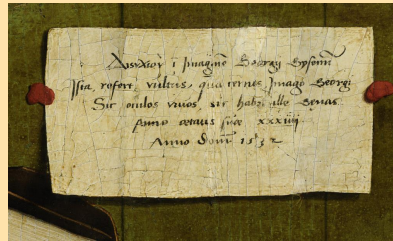 Διςιχοὺ ĩ Imaginē Georgij Gysenij
Ista refert vultus, quã cernes, Imago Georgi
Sic oculos viuos, sic habet ille genas
Anno aetatis suæ xxxiiij
Anno dom̃ 1532